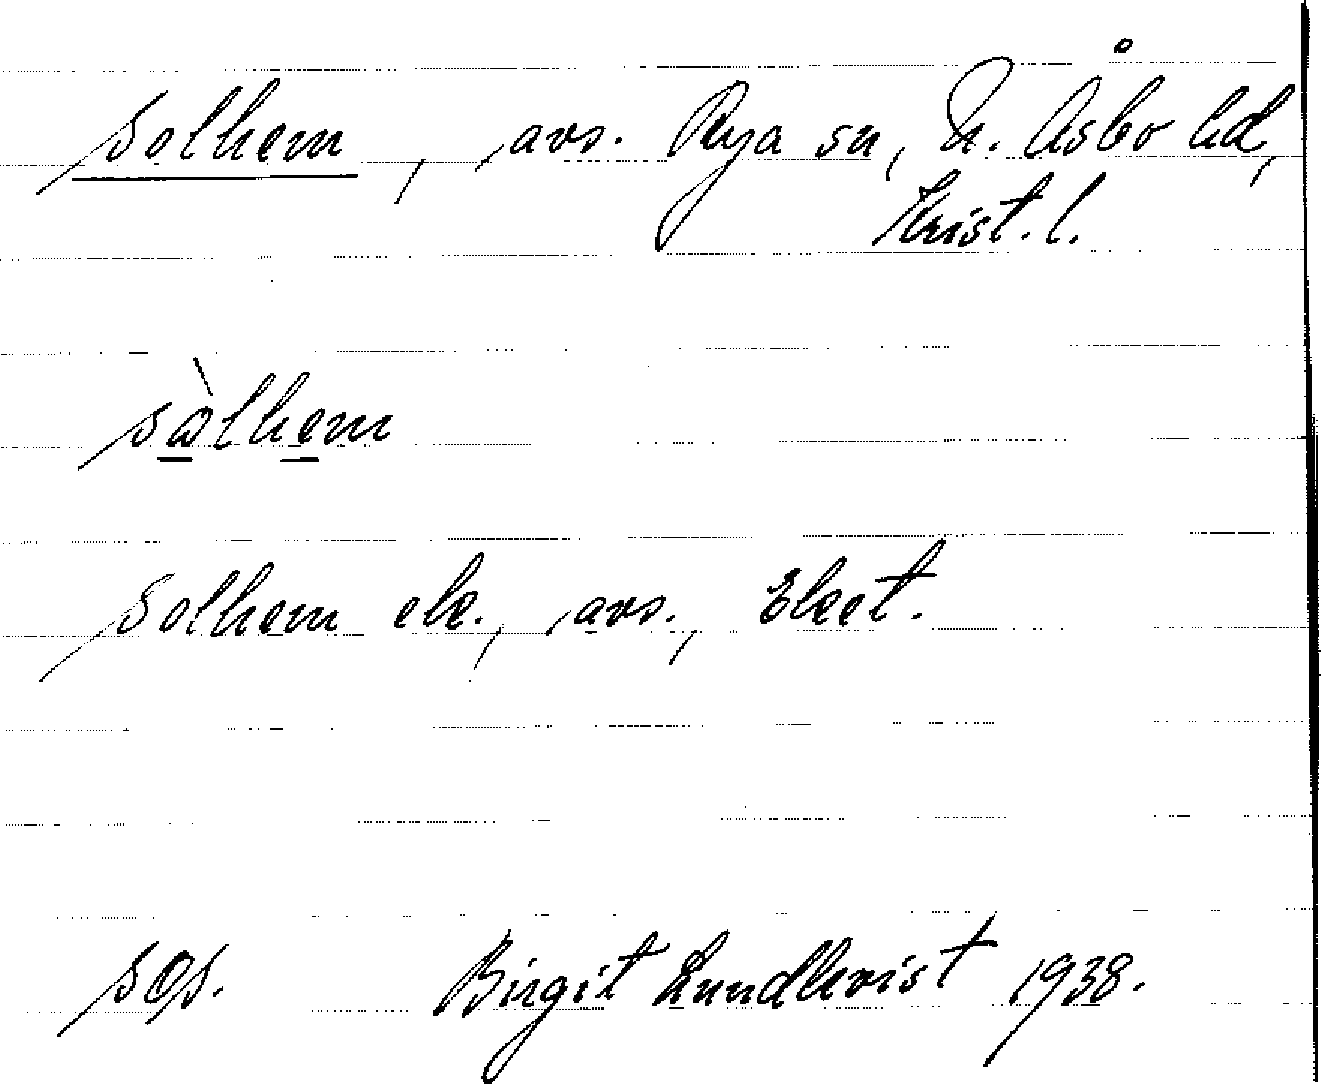 Solhem, avs. Rya sn, N. Åsbo hd,
Krist. l.
sὼlhem
Solhem ek., avs.,
SOS. Birgit Lundkvist 1938.